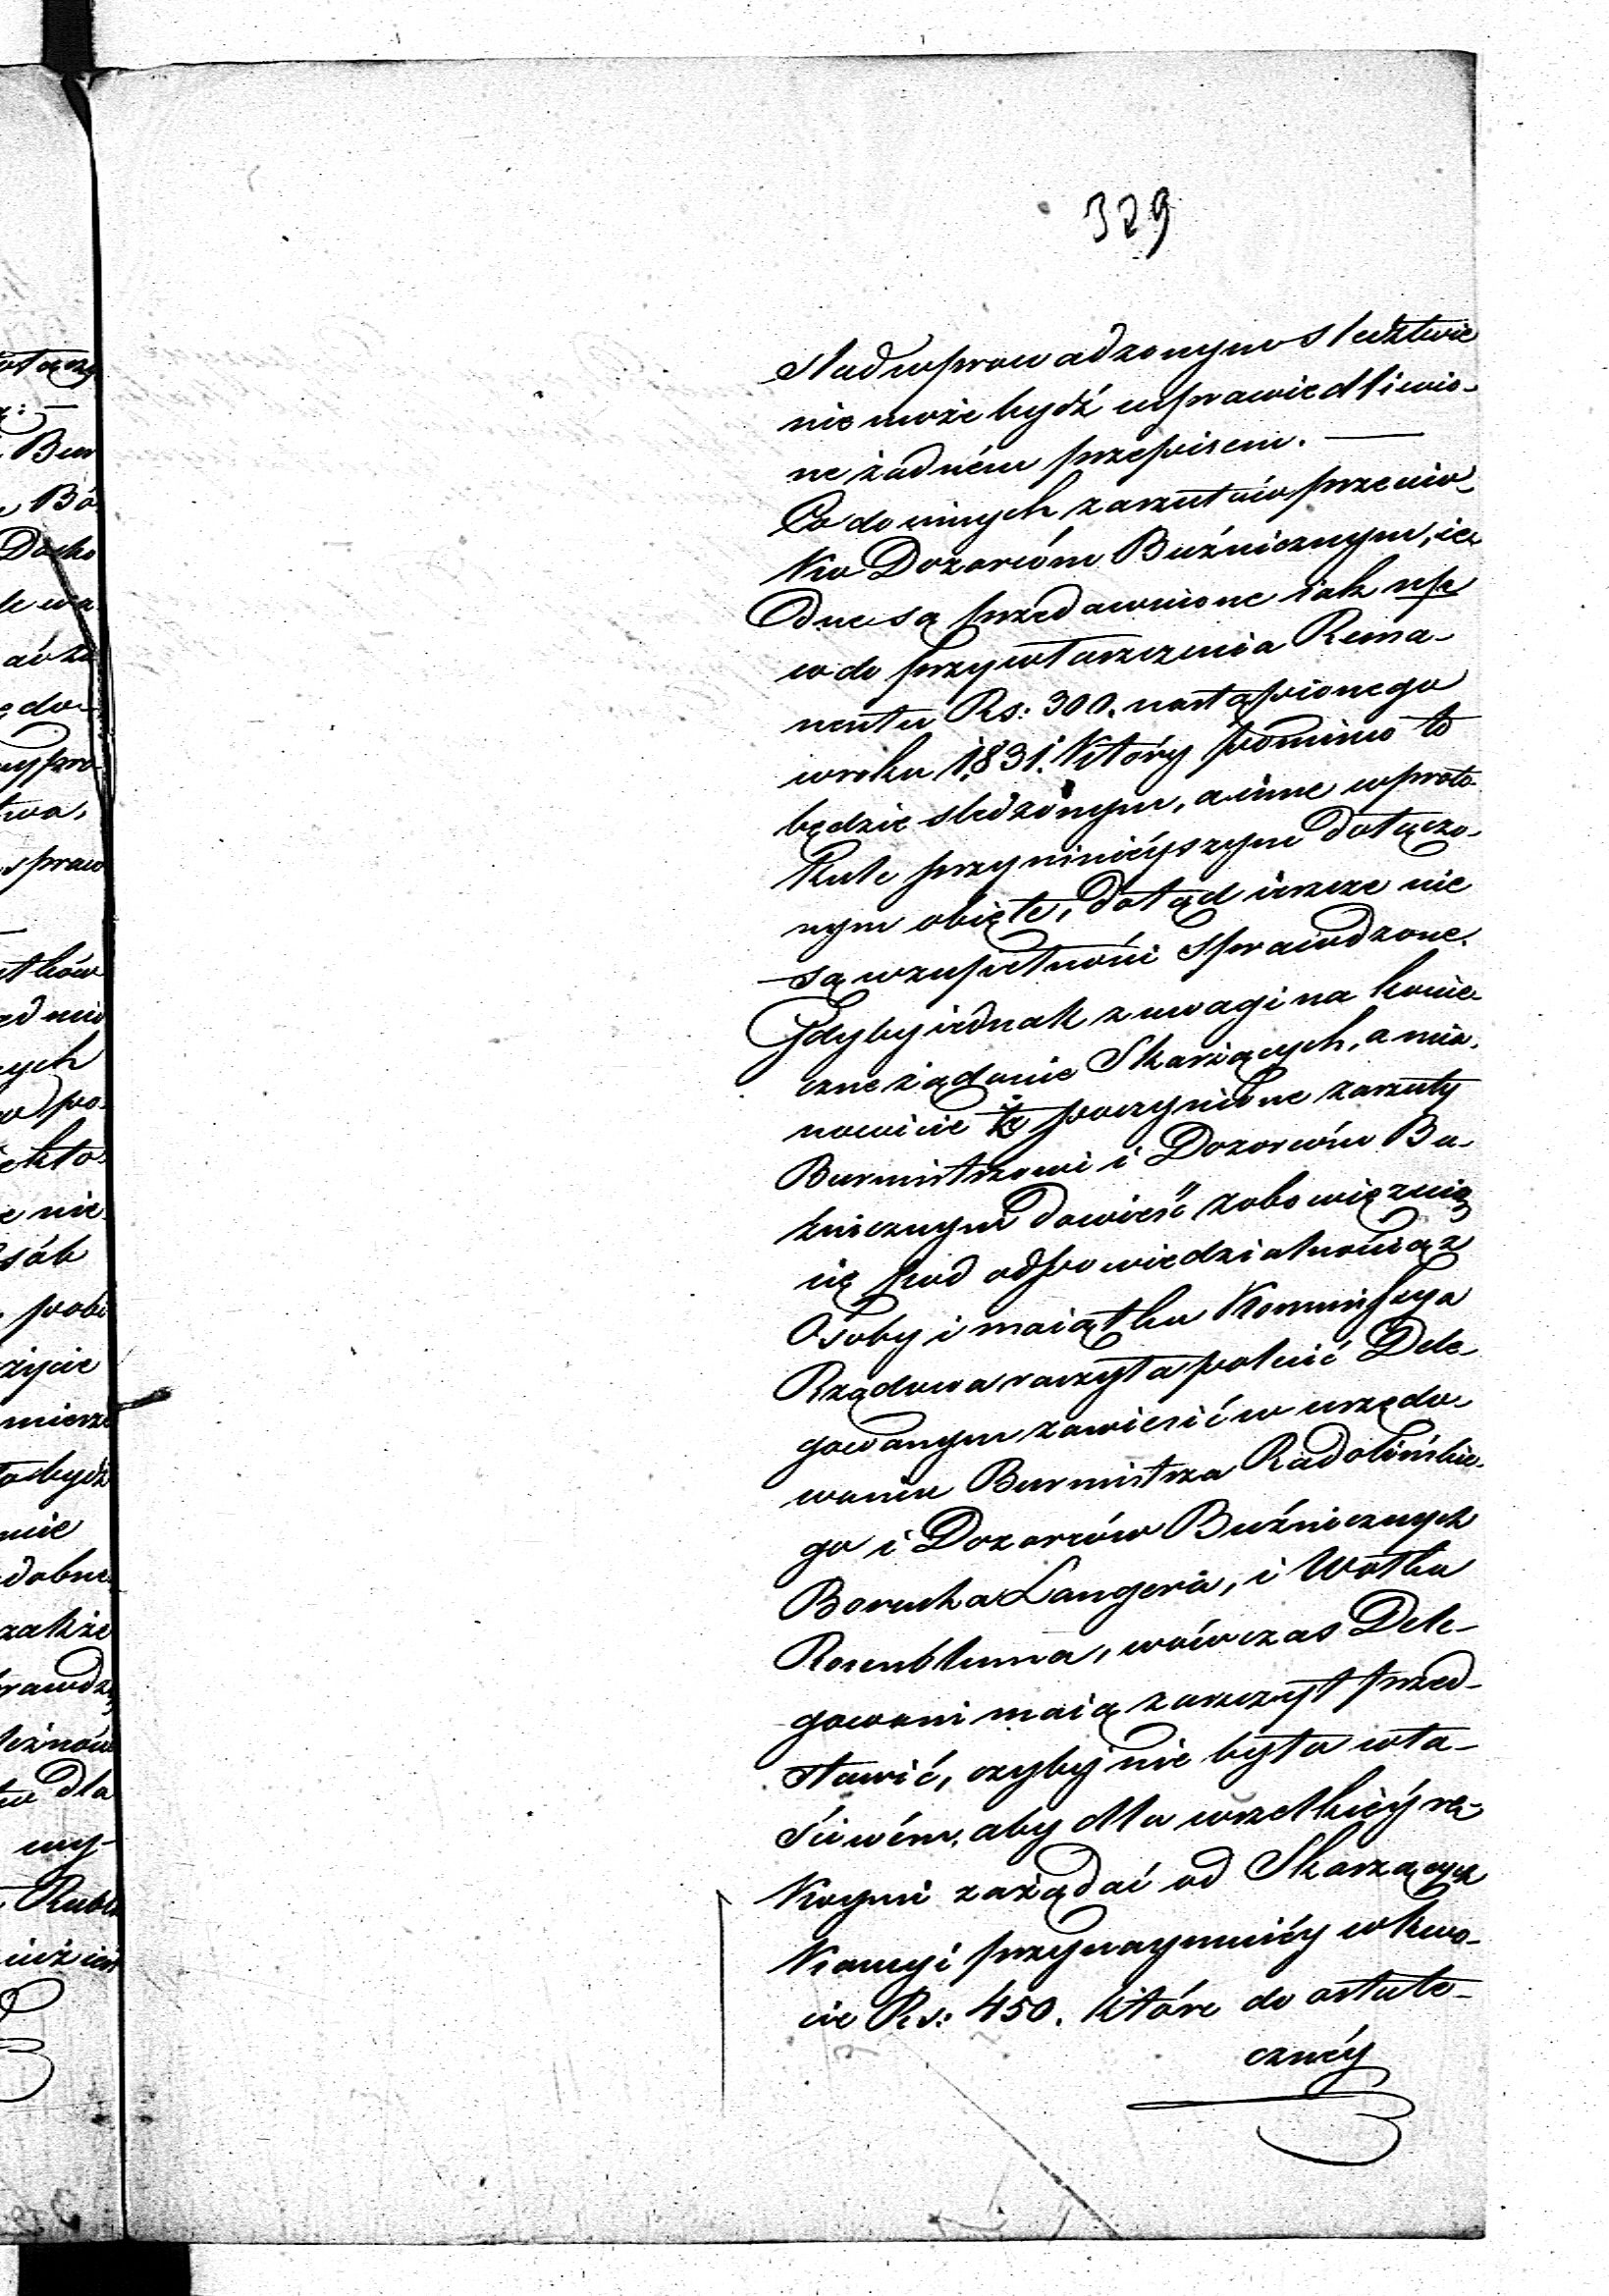 329
Nad wprowadzonym Sledztwie
nie może bydź usprawiedliwio-
ne żadném przepisem. —
Co do innych zarzutów przeciw-
ko Dozorcóm Bużnicznym, ie-
dne są przedawnione iak np
co do przywłaszczenia Rema-
nentu Rs: 300. nastąpionego
w roku 1831. Który pomimo to
będzie sledzonym, a inne w proto-
kule przy ninieyszym dołączo-
nym obięte, dotąd ieszcze nie
są w zupełności sprawdzone.
Gdyby iednak z uwagi na konie-
czne żądanie Skarżących, a mia-
nowicie że poczynione zarzuty
Burmistrzowi i Dozorcóm Bu-
żnicznym dowieść zobowięzuią
się pod odpowiedzialnością z
Osoby i maiątku Kommissya
Rządowa raczyła polecić Dele-
gowanym zawiesić w urzędo-
waniu Burmistrza Radolińskie-
go i Dozorców Bużnicznych
Borucha Langera, i Wolka
Rosenbluma, wówczas Dele-
gowani maią zaszczyt przed-
stawić, czyby nie było wła-
ściwém, aby dla wszelkiéy rę-
koymi zażądać od Skarżących
Kaucyi przynaymniéy w kwo-
cie Rs: 450. które do ostate-
cznéy